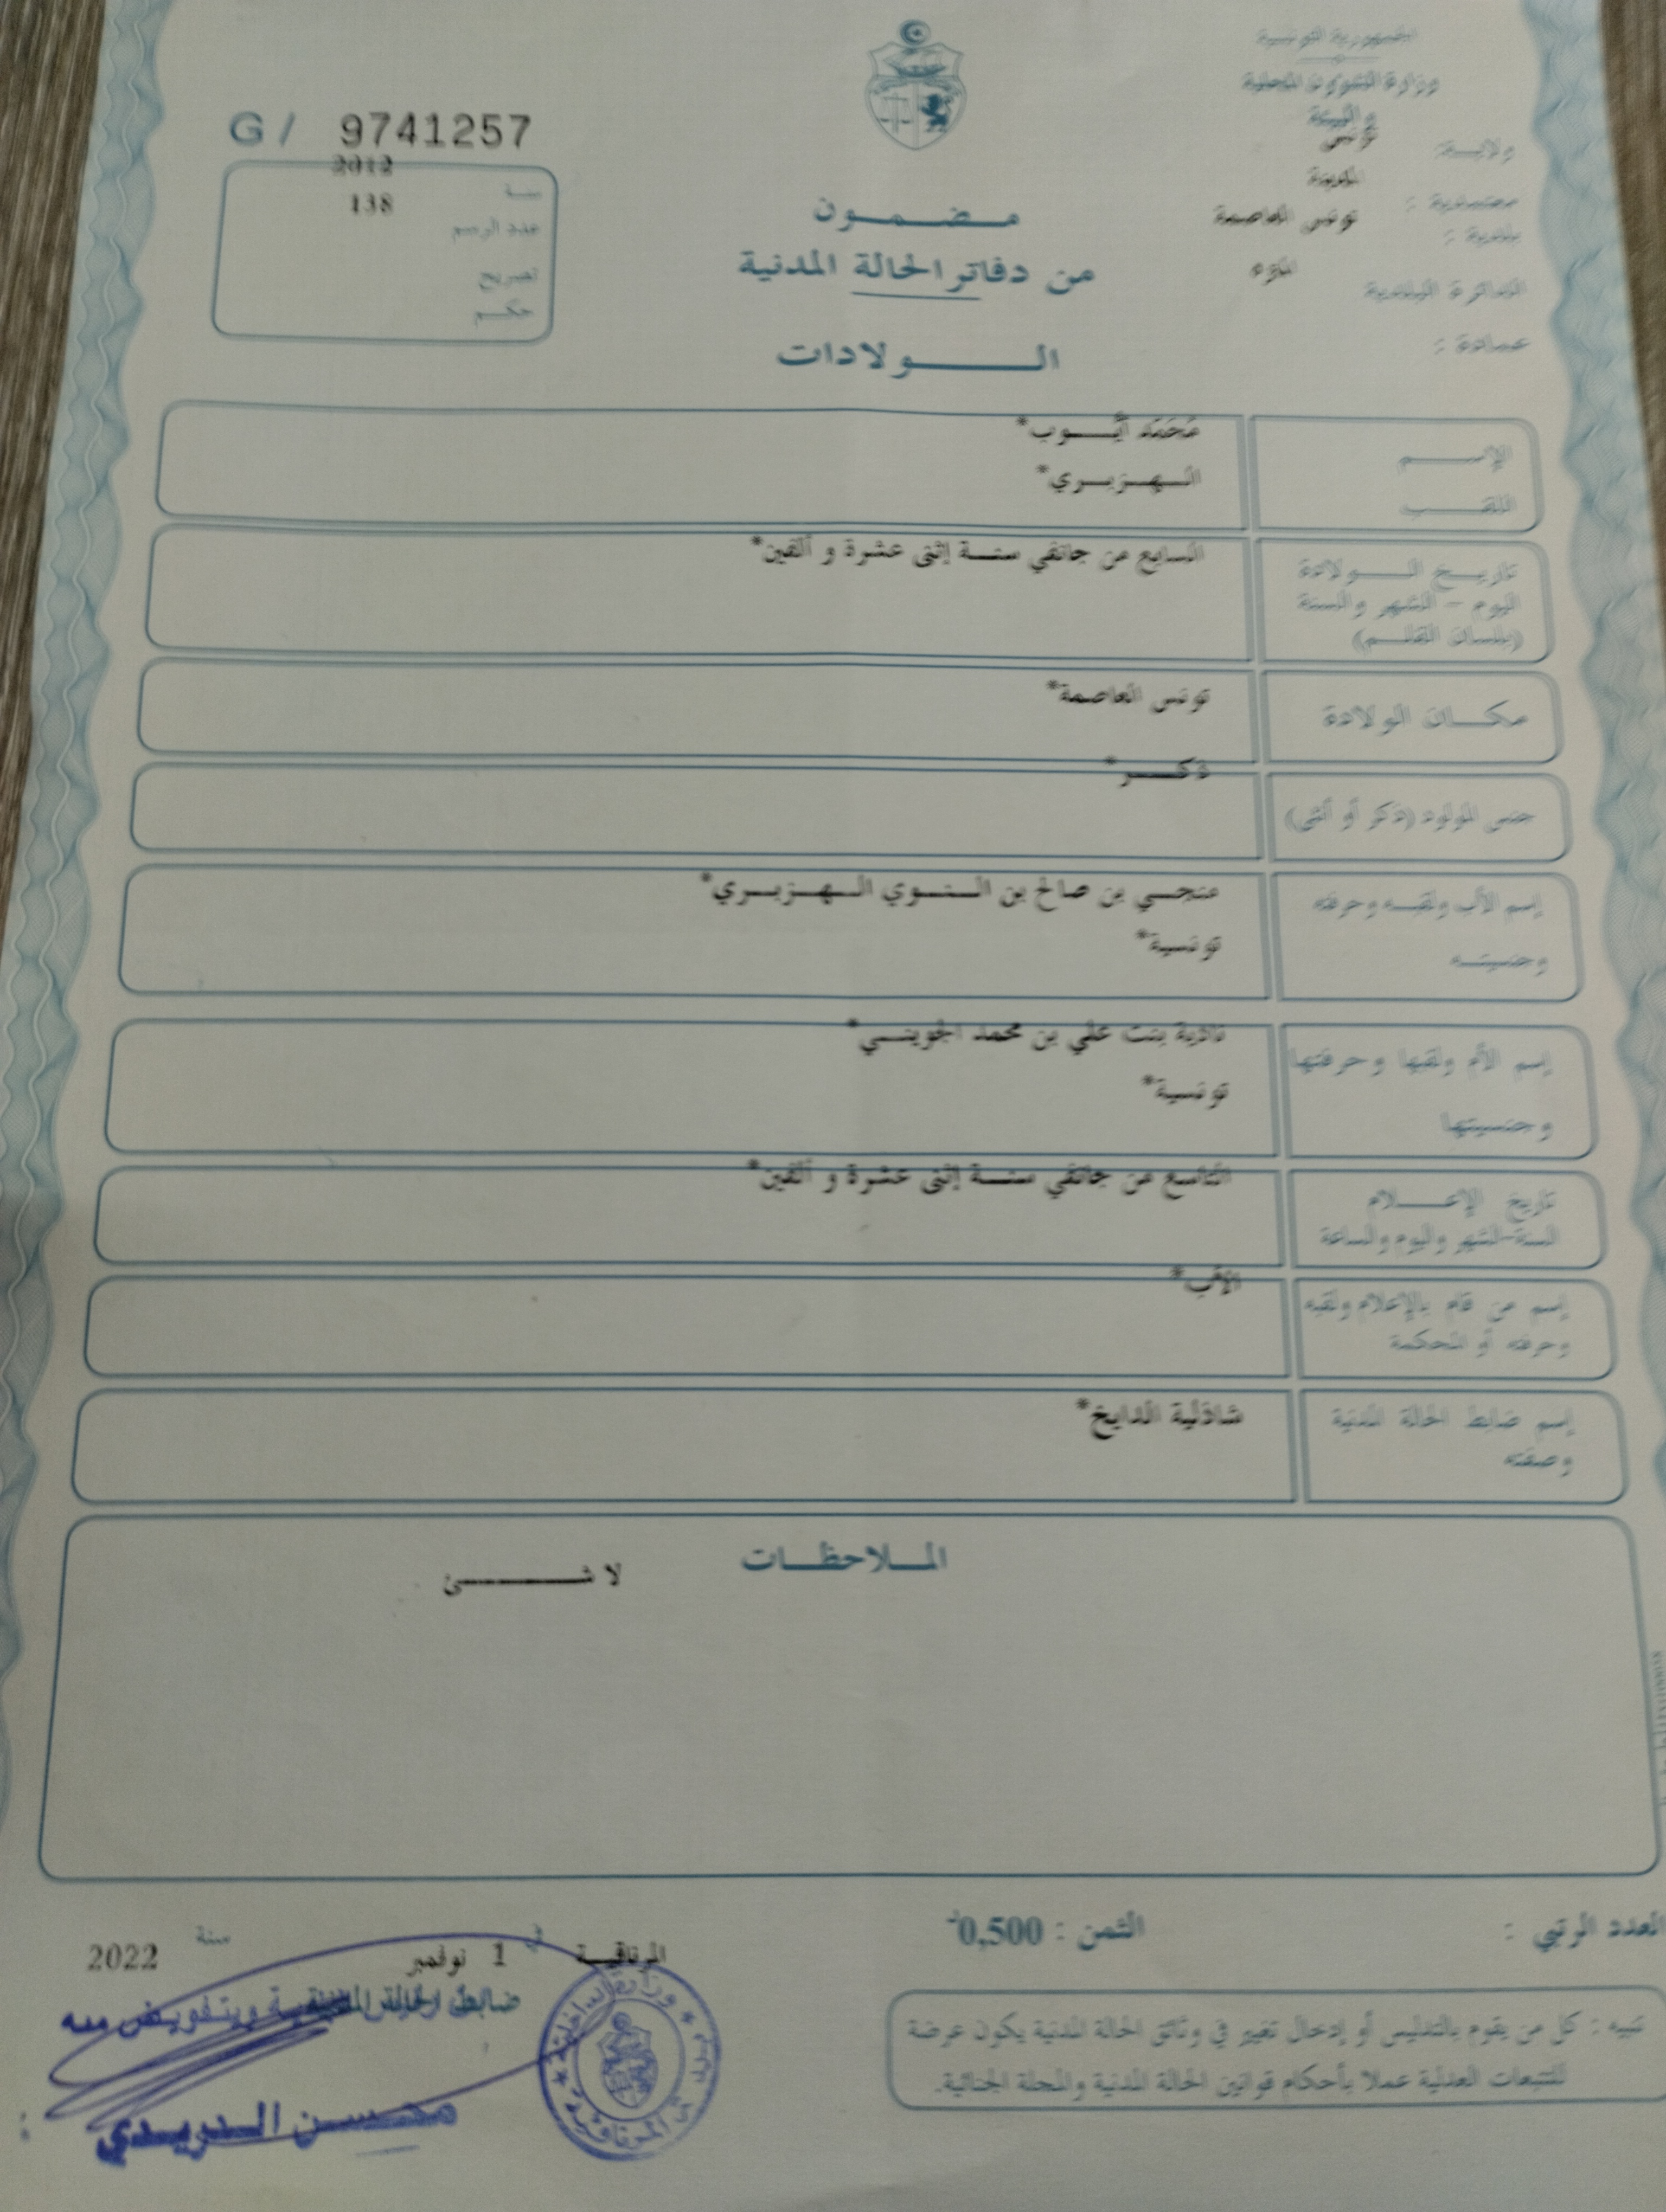 الجمهورية التونسية
وزارة الشؤون المحلية
والبيئة
G/ 9741257
ولاية: تونس
سنة 2012
معتمدية : المدينة
عدد الرسم 138
بلدية : تونس العاصمة
تصريح
الدائرة البلدية
حكم
عمادة :
مضمون
من دفاتر الحالة المدنية
الولادات
الإسم مُحَمّد أيّوب*
اللقب الهزبري*
تاريخ الولادة السابع من جانفي سنة إثنى عشرة و ألفين*
اليوم - الشهر والسنة
(بلسان القلم)
مكان الولادة تونس العاصمة*
جنس المولود (ذكر أو أنثى) ذكر*
إسم الأب ولقبه وحرفته منجي بن صالح بن النوي الهزبري*
وجنسيته تونسية*
إسم الأم ولقبها وحرفتها نادية بنت علي بن محمد الجويني*
وجنسيتها تونسية*
تاريخ الإعلام التاسع من جانفي سنة إثنى عشرة و ألفين*
السنة-الشهر واليوم والساعة
إسم من قام بالإعلام ولقبه الأب*
وحرفته أو المحكمة
إسم ضابط الحالة المدنية شاذلية الدايخ*
وصفته
الملاحظات
لا شئ
العدد الرتبي :
الثمن : 0,500د
المرناقية في 1 نوفمبر سنة 2022
ضابط الحالة المدنية
وبتفويض منه
محسن الدريدي
تنبيه : كل من يقوم بالتدليس أو إدخال تغيير في وثائق الحالة المدنية يكون عرضة
للتتبعات العدلية عملا بأحكام قوانين الحالة المدنية والمجلة الجنائية.